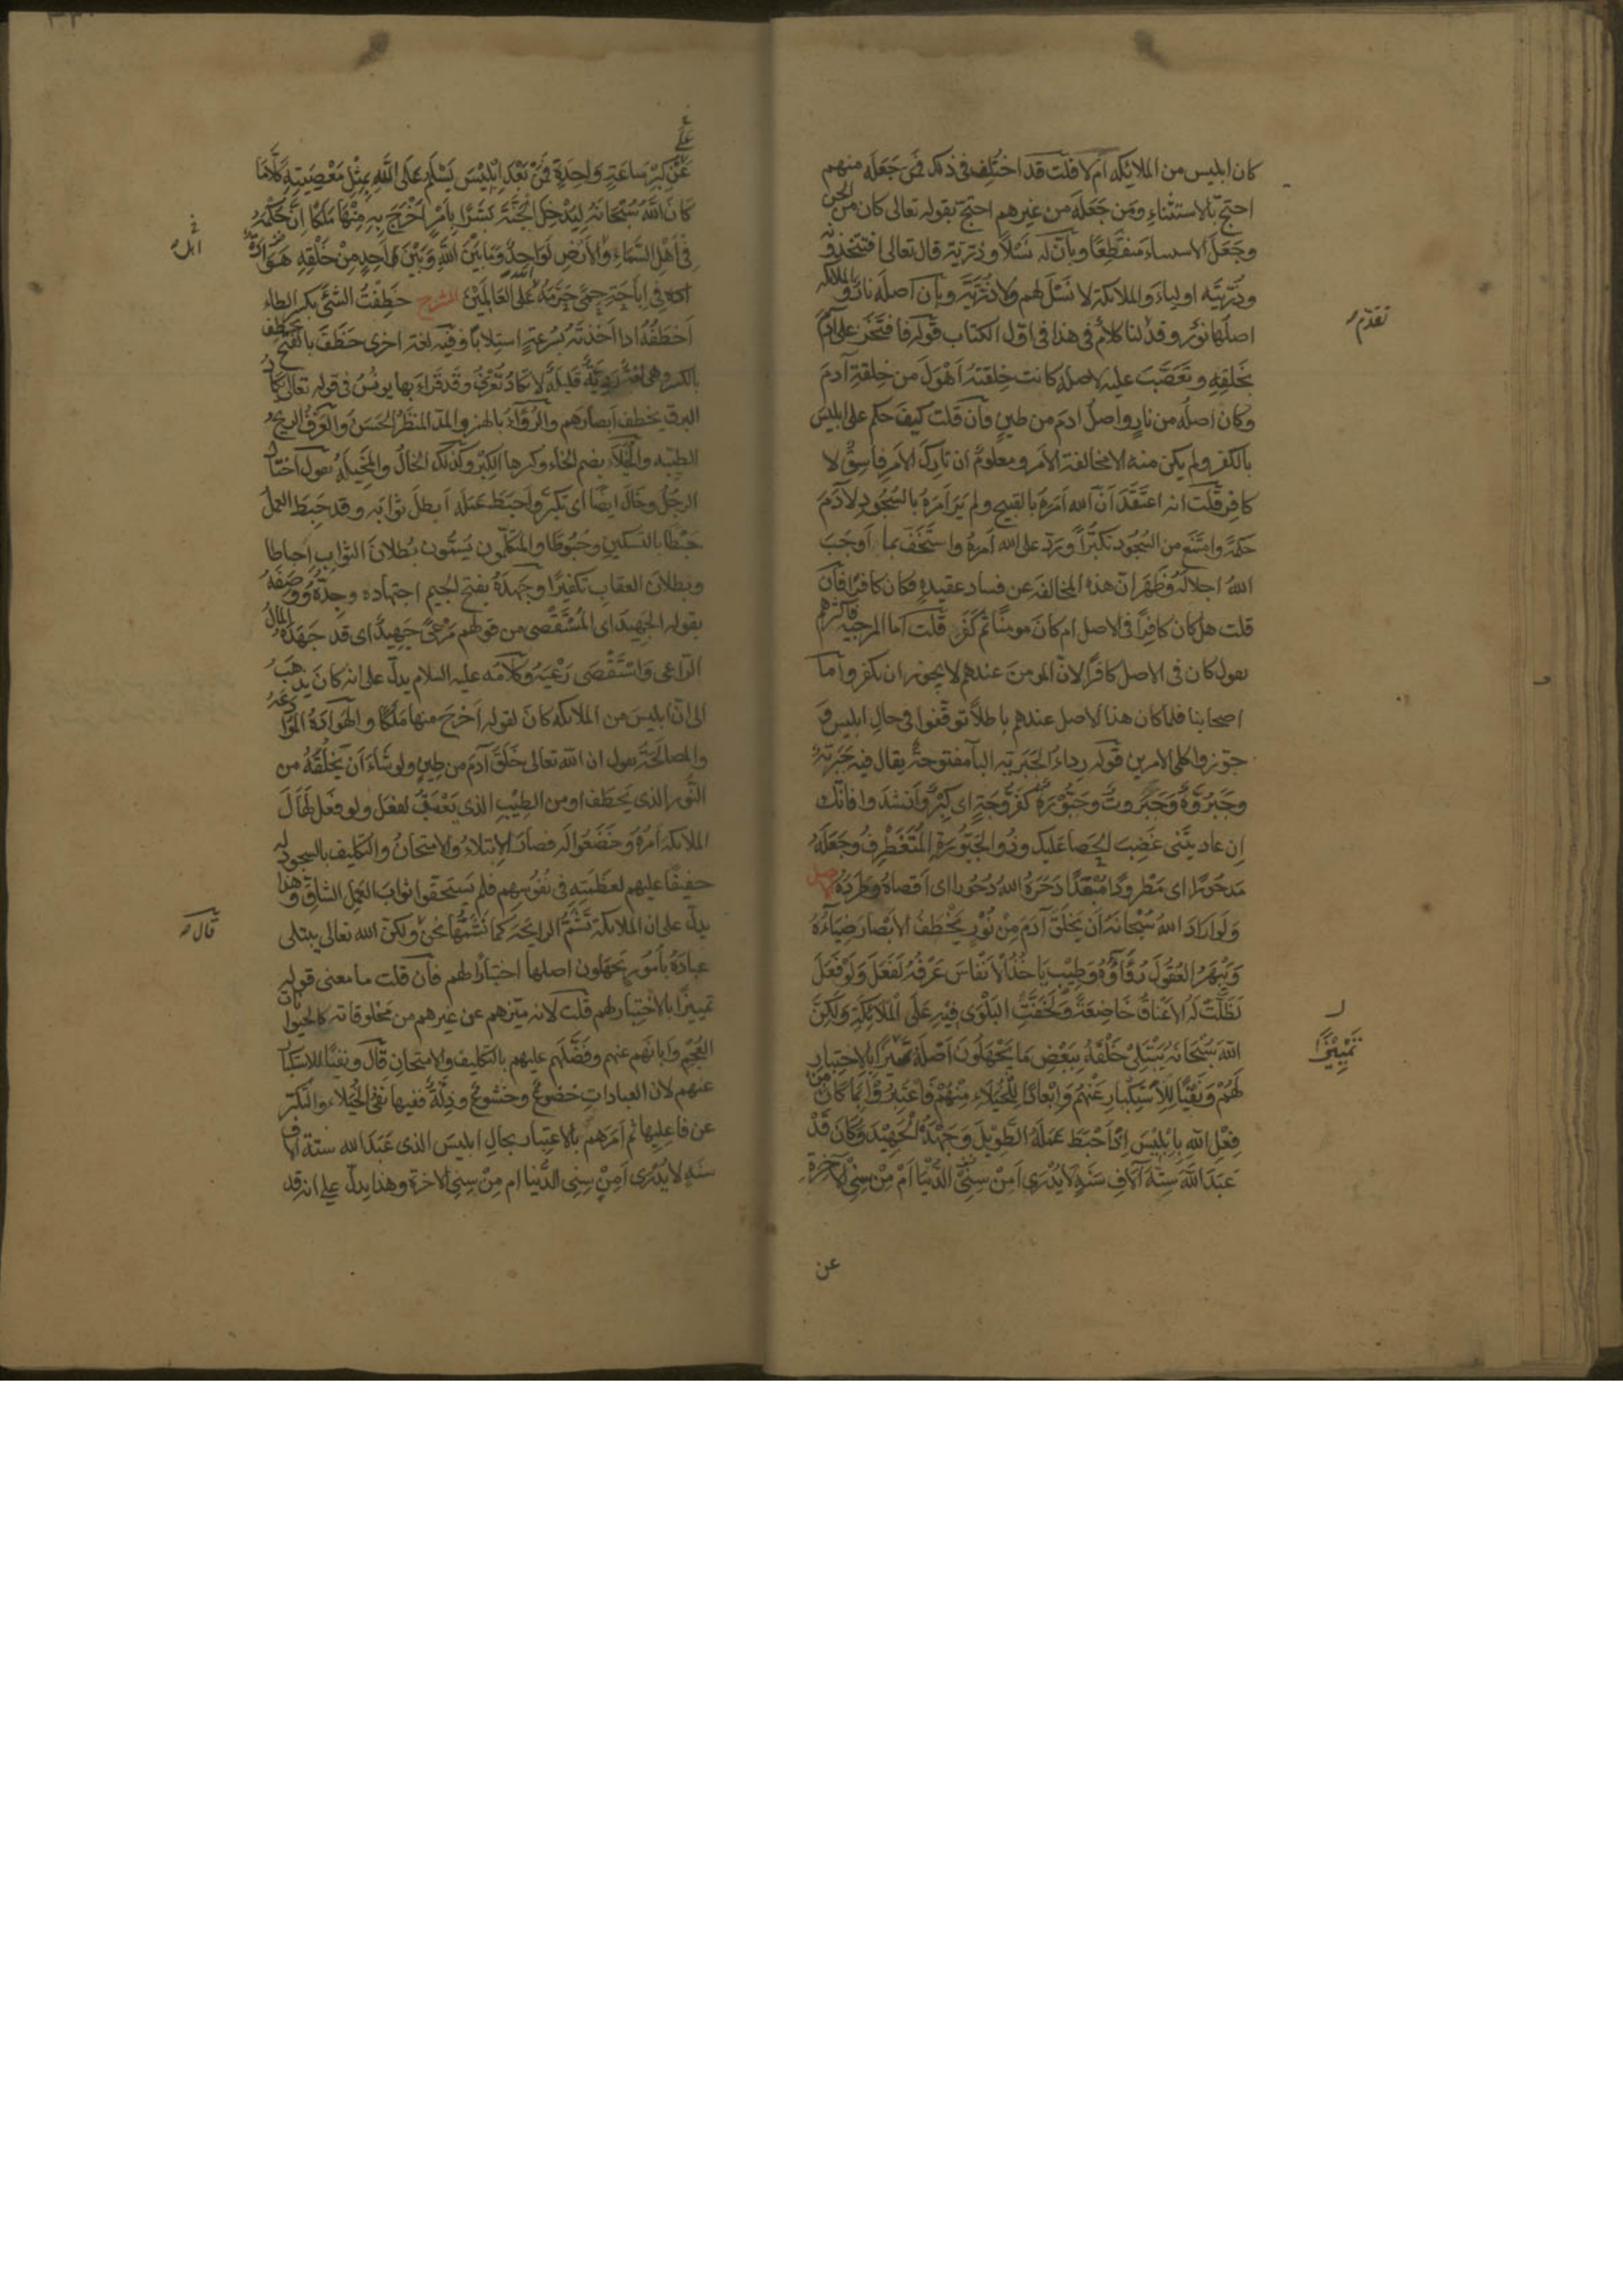 كان ابليس من الملائكه ام لا قلت قد اختلف فى ذلك فمن جعله منهم
احتج بالاستثناء ومن جعله من غيرهم احتج بقوله تعالى كان من الجن
وجعل الاستثناء منقطعا وبان له نسلا وذرية قال تعالى افتتخذونه
وذريته اولياء والملائكة لا نسل لهم ولا ذرية وبان اصله نار والملائكه
اصلها نور وقد لنا كلام فى هذا فى اول الكتاب قوله فافتخر على آدم
تقدم
بخلقه وتعصب عليه لاصله كانت خلقته اهول من خلقة آدم
وكان اصله من نار واصل ادم من طين فان قلت كيف حكم على ابليس
بالكفر ولم يكن منه الا مخالفة الامر ومعلوم ان تارك الامر فاسق لا
كافر قلت انه اعتقد ان الله امره بالقبيح ولم ير امره بالسجود لآدم
حكمة وامتنع من السجود تكبرا ورد على الله امره واستخف بما اوجب
الله اجلاله وظهر ان هذه المخالفة عن فساد عقيدة فكان كافرا فان
قلت هل كان كافرا فى الاصل ام كان مومنا ثم كفر قلت اما المرجيه فاكثرهم
يقول كان فى الاصل كافرا لان المومن عندهم لا يجوز ان يكفر واما
اصحابنا فلما كان هذا الاصل عندهم باطلا توقفوا فى حال ابليس و
جوزوا كلى الامرين قوله رداء الجبرية البا مفتوحة يقال فيه جبرية
وجبروة وجبروت وجبورة كفروجة اى كبر وانشدوا فانك
ان عاديتنى غضب الحصا عليك وذو الجبورة المتغطرف وجعله
مدحورا اى مطرودا مبعدا دحره الله دحورا اى اقصاه وطرده الاصل
ولو اراد الله سبحانه ان يخلق آدم من نور يخطف الابصار ضياؤه
ويبهر العقول رؤاؤه وطيب ياخذ الانفاس عرفه لفعل ولو فعل
لظلت له الاعناق خاضعة ولخفت البلوى فيه على الملائكة ولكن
الله سبحانه يبتلى خلقه ببعض ما يجهلون اصله تمييزا بالاختبار
تمييزا
لهم ونفيا للاستكبار عنهم وابعادا للخيلاء منهم فاعتبروا بما كان من
فعل الله بابليس اذ احبط عمله الطويل وجهده الجهيد وكان قد
عبد الله ستة آلاف سنة لا يدرى امن سنى الدنيا ام من سنى الآخرة
عن
على
عن كبر ساعة واحدة فمن بعد ابليس يسلم على الله بمثل معصيته كلا ما
كان الله سبحانه ليدخل الجنة بشرا بامر اخرج به منها ملكا ان حكمه
فى اهل السماء والارض لواحد وما بين الله وبين احد من خلقه هوادة
اهل
فى اباحة حمى حرمه الله على العالمين الشرح خطفت الشئ بكسر الطاء
اخطفه اذا اخذته بسرعة استلابا وفيه لغة اخرى خطف بالفتح يخطف
بالكسر وهى لغة رديئة قليلة لا تكاد تعرف وقد قراء بها يونس فى قوله تعالى يكاد
البرق يخطف ابصارهم والرواء بالهمز والمد المنظر الحسن والعرف الريح
الطيبه والخيلاء بضم الخاء وكسرها الكبر وكذلك الخال والمخيلة يقول اختال
الرجل وخال ايضا اى تكبر واحبط عمله ابطل ثوابه وقد حبط العمل
حبطا بالتسكين وحبوطا والمتكلمون يسمون بطلان الثواب احباطا
وبطلان العقاب تكفيرا وجهده بفتح الجيم اجتهاده وجده ووصفه
بقوله الجهيد اى المستقصى من قولهم مرعى جهيد اى قد جهده المال
الراعى واستقصى رعيه وكلامه عليه السلام يدل على انه كان يذهب
الى ان ابليس من الملائكه كان لقوله اخرج منها ملكا والهوادة الموادعة
والمصالحة يقول ان الله تعالى خلق آدم من طين ولو شاء ان يخلقه من
النور الذى يخطف او من الطيب الذى يعبق لفعل ولو فعل لهال
الملائكة امره وخضعوا له فصار الابتلاء والامتحان والتكليف بالسجود له
خفيفا عليهم لعظمته فى نفوسهم فلم يستحقوا ثواب العمل الشاق وهذا
يدل على ان الملائكة تشم الرايحة كما نشمها نحن ولكن الله تعالى يبتلى
قال
عباده بامور يجهلون اصلها اختبارا لهم فان قلت ما معنى قوله
تمييزا بالاختبار لهم قلت لانه ميزهم عن غيرهم من مخلوقاته كالحيوانات
العجم وابانهم عنهم وفضلهم عليهم بالتكليف والامتحان قال ونفيا للاستكبار
عنهم لان العبادات خضوع وخشوع وذلة ففيها نفى الخيلاء والتكبر
عن فاعليها ثم امرهم بالاعتبار بحال ابليس الذى عبد الله ستة آلاف
سنة لا يدرى امن سنى الدنيا ام من سنى الاخرة وهذا يدل على انه قد